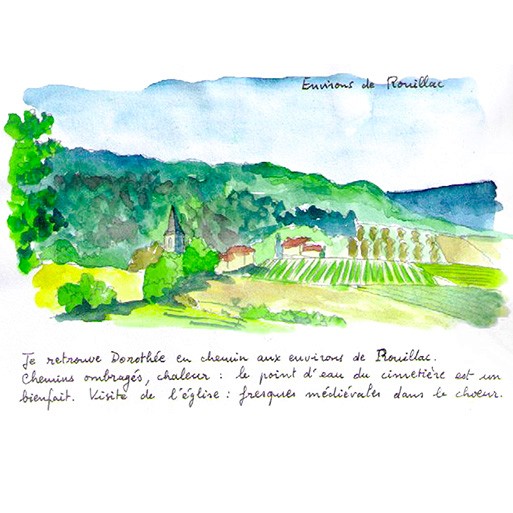 Environs de Rouillac
Je retrouve Dorothée en chemin aux environs de Rouillac.
Chemins ombragés, chaleur : le point d'eau du cimetière est un
bienfait. Visite de l'église : fresques médiévales dans le choeur.